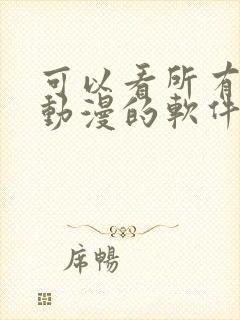 可以看所有
動漫的軟件
席暢